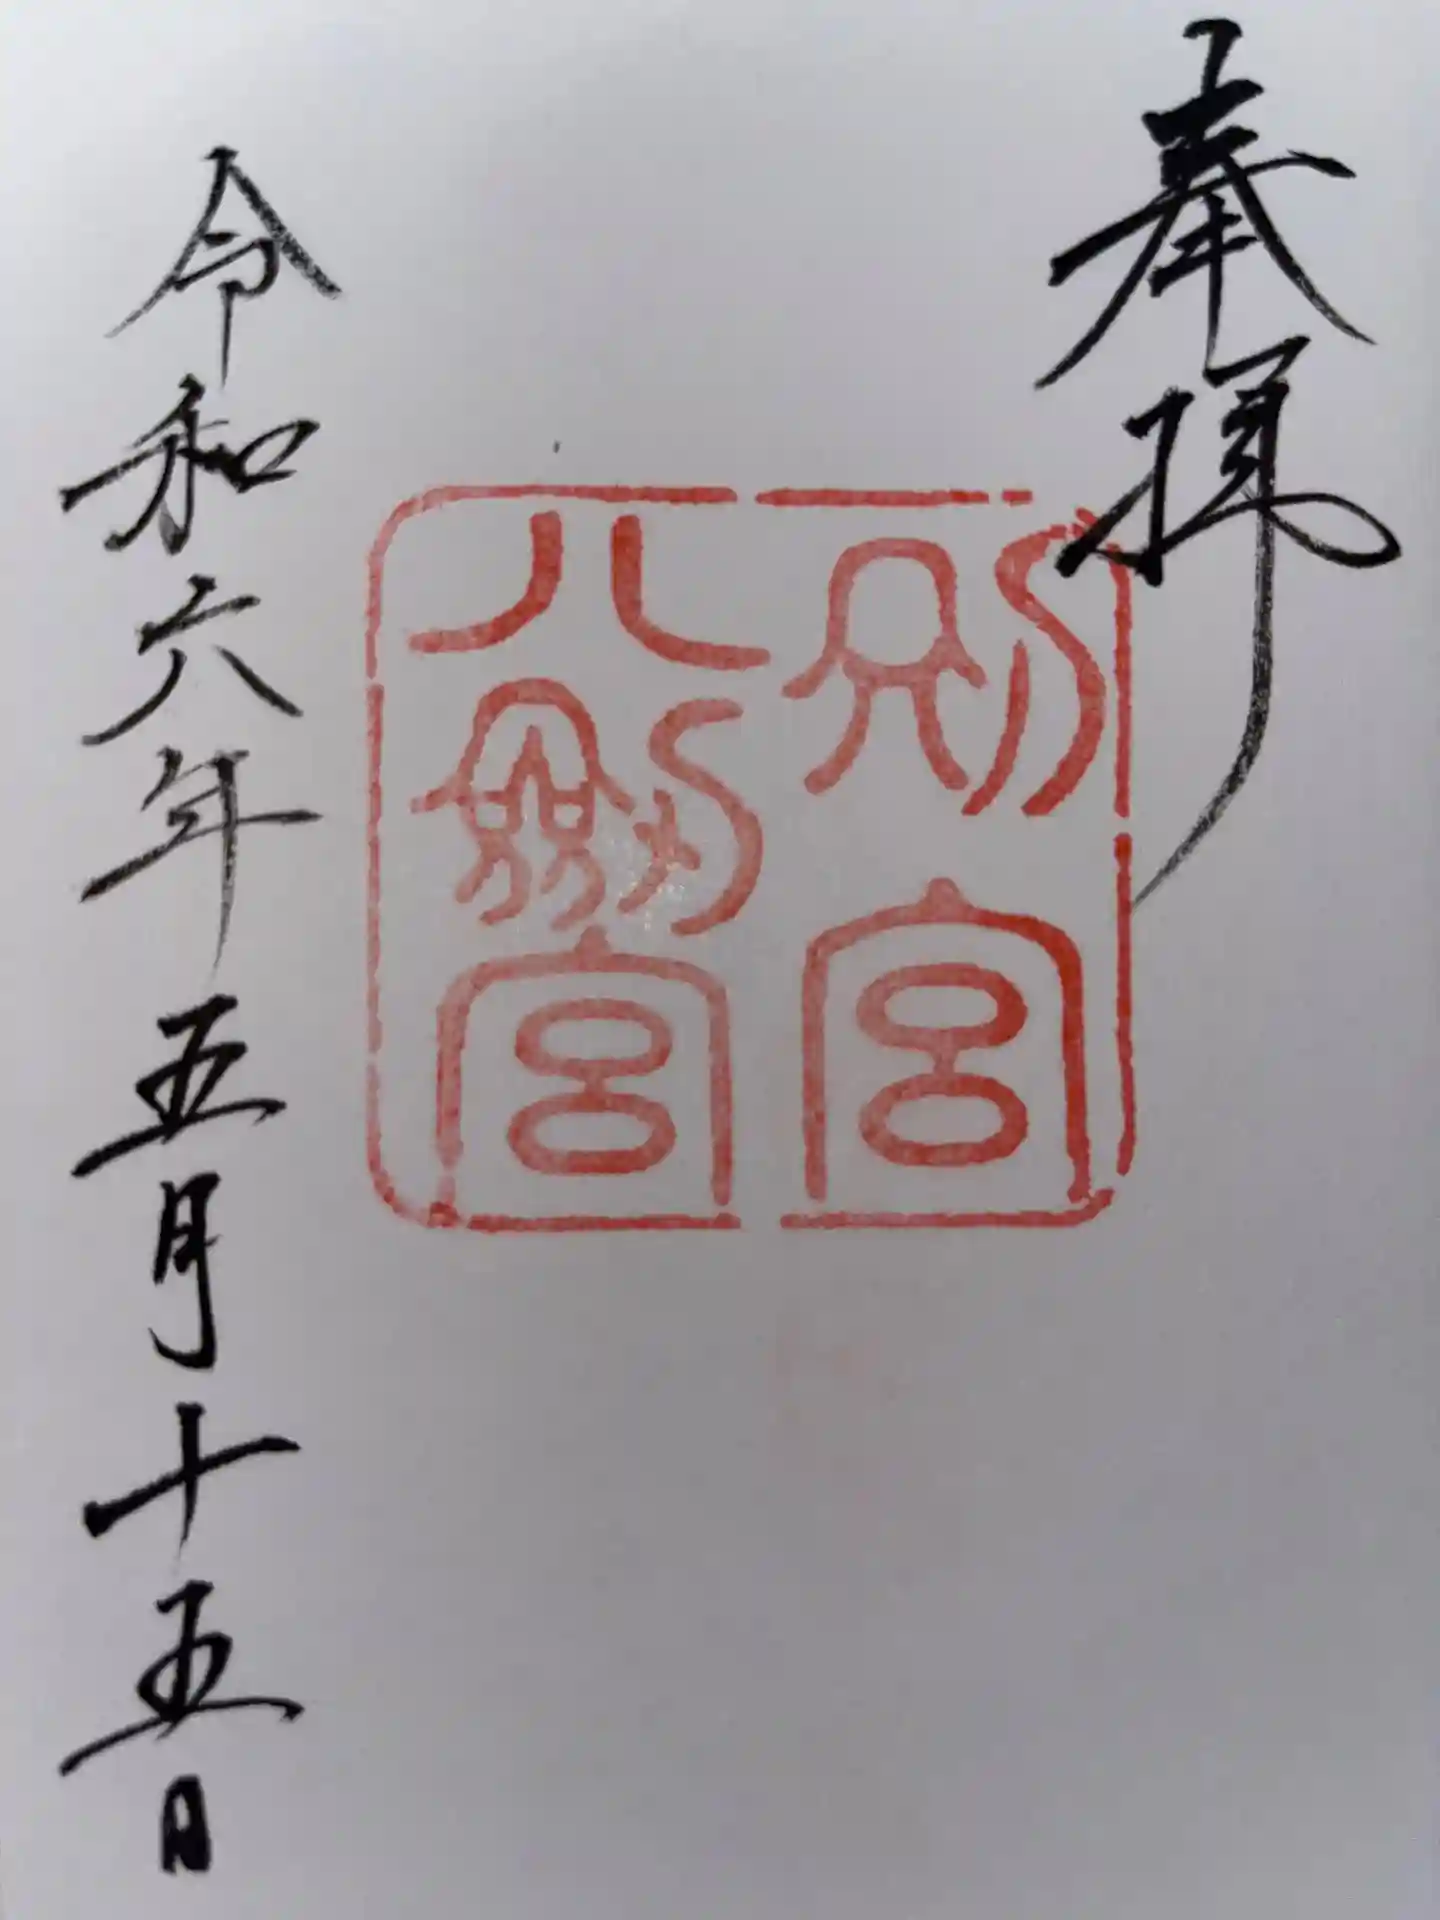 奉拝
別宮
八劔宮
令和六年五月十五日